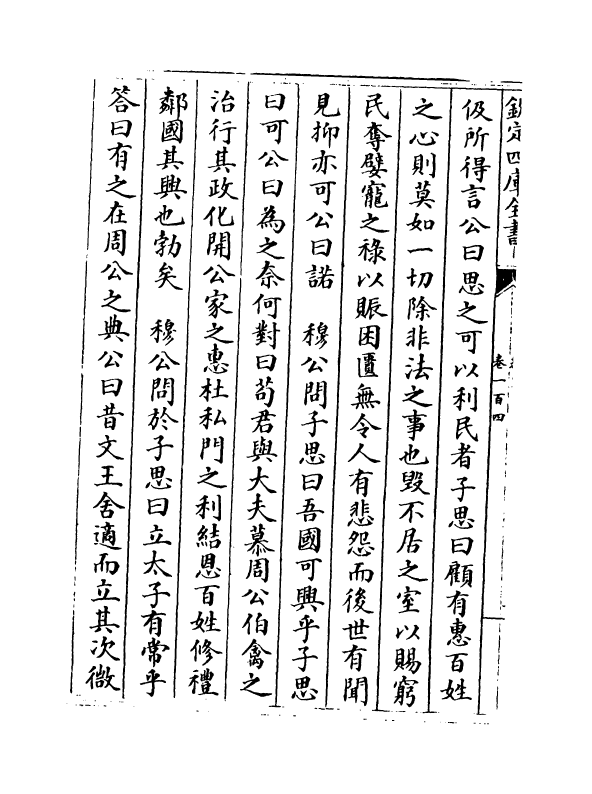 欽定四庫全書
卷一百四
伋所得言公曰思之可以利民者子思曰顧有惠百姓
之心則莫如一切除非法之事也毀不居之室以賜窮
民奪嬖寵之祿以賑困匱無令人有悲怨而後世有聞
見抑亦可公曰諾　穆公問子思曰吾國可興乎子思
曰可公曰為之奈何對曰苟君與大夫慕周公伯禽之
治行其政化開公家之惠杜私門之利結恩百姓修禮
鄰國其興也勃矣　穆公問於子思曰立太子有常乎
答曰有之在周公之典公曰昔文王舍適而立其次微